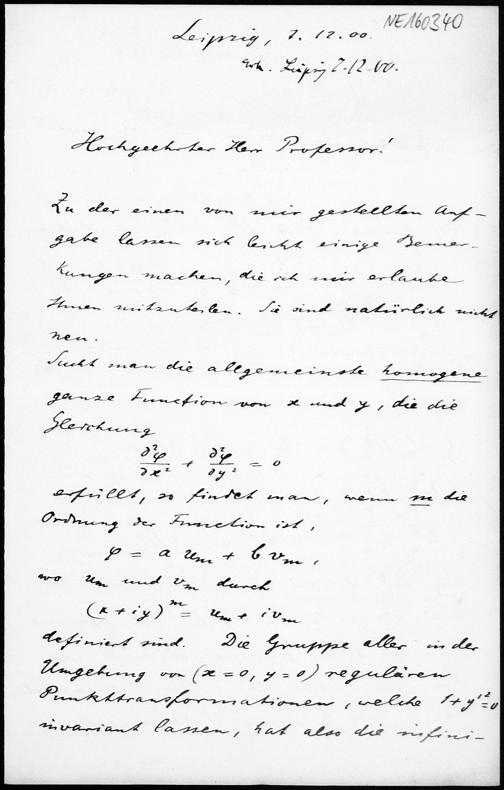 NE160340
Leipzig, 7. 12. 00.
Leipzig 7-12-00.
Hochgeehrter Herr Professor!
Zu der einen von mir gestellten Auf-
gabe lassen sich leicht einige Bemer-
kungen machen, die ich mir erlaube
Ihnen mitzuteilen. Sie sind natürlich nicht
neu.
Sucht man die allgemeinste homogene
ganze Function von x und y, die die
Gleichung
∂²φ/∂x² + ∂²φ/∂y² = 0
erfüllt, so findet man, wenn m die
Ordnung der Function ist,
φ = a uₘ + b vₘ,
wo uₘ und vₘ durch
(x + iy)ᵐ = uₘ + i vₘ
definiert sind. Die Gruppe aller in der
Umgebung von (x = 0, y = 0) regulären
Punkttransformationen, welche 1 + y'² = 0
invariant lassen, hat also die infini-